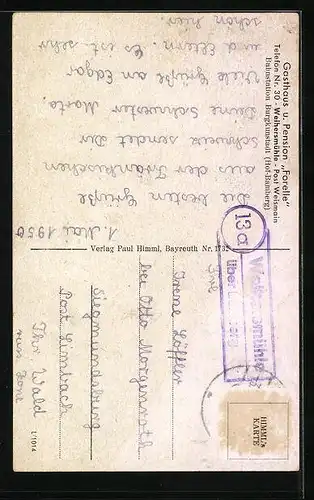 Gasthaus u. Pension „Forelle“
Telefon Nr. 30 - Weihersmühle - Post Weismain
Bahnstation Burgkunstadt (Hof-Bamberg)
1. Mai 1950
Die besten Grüße
aus der Fränkischen
Schweiz sendet Dir
Deine Schwester Marta.
Viele Grüße an Edgar
und Eltern. Es ist sehr
schön hier.
Verlag Paul Himml, Bayreuth Nr. 1732
13a
Weihersmühle
über
HIMML's
KARTE
Frl.
Irene Löffler
bei Otto Morgenroth
Siegmundsburg
Post Limbach
Thür. Wald
russ. Zone
L/1014